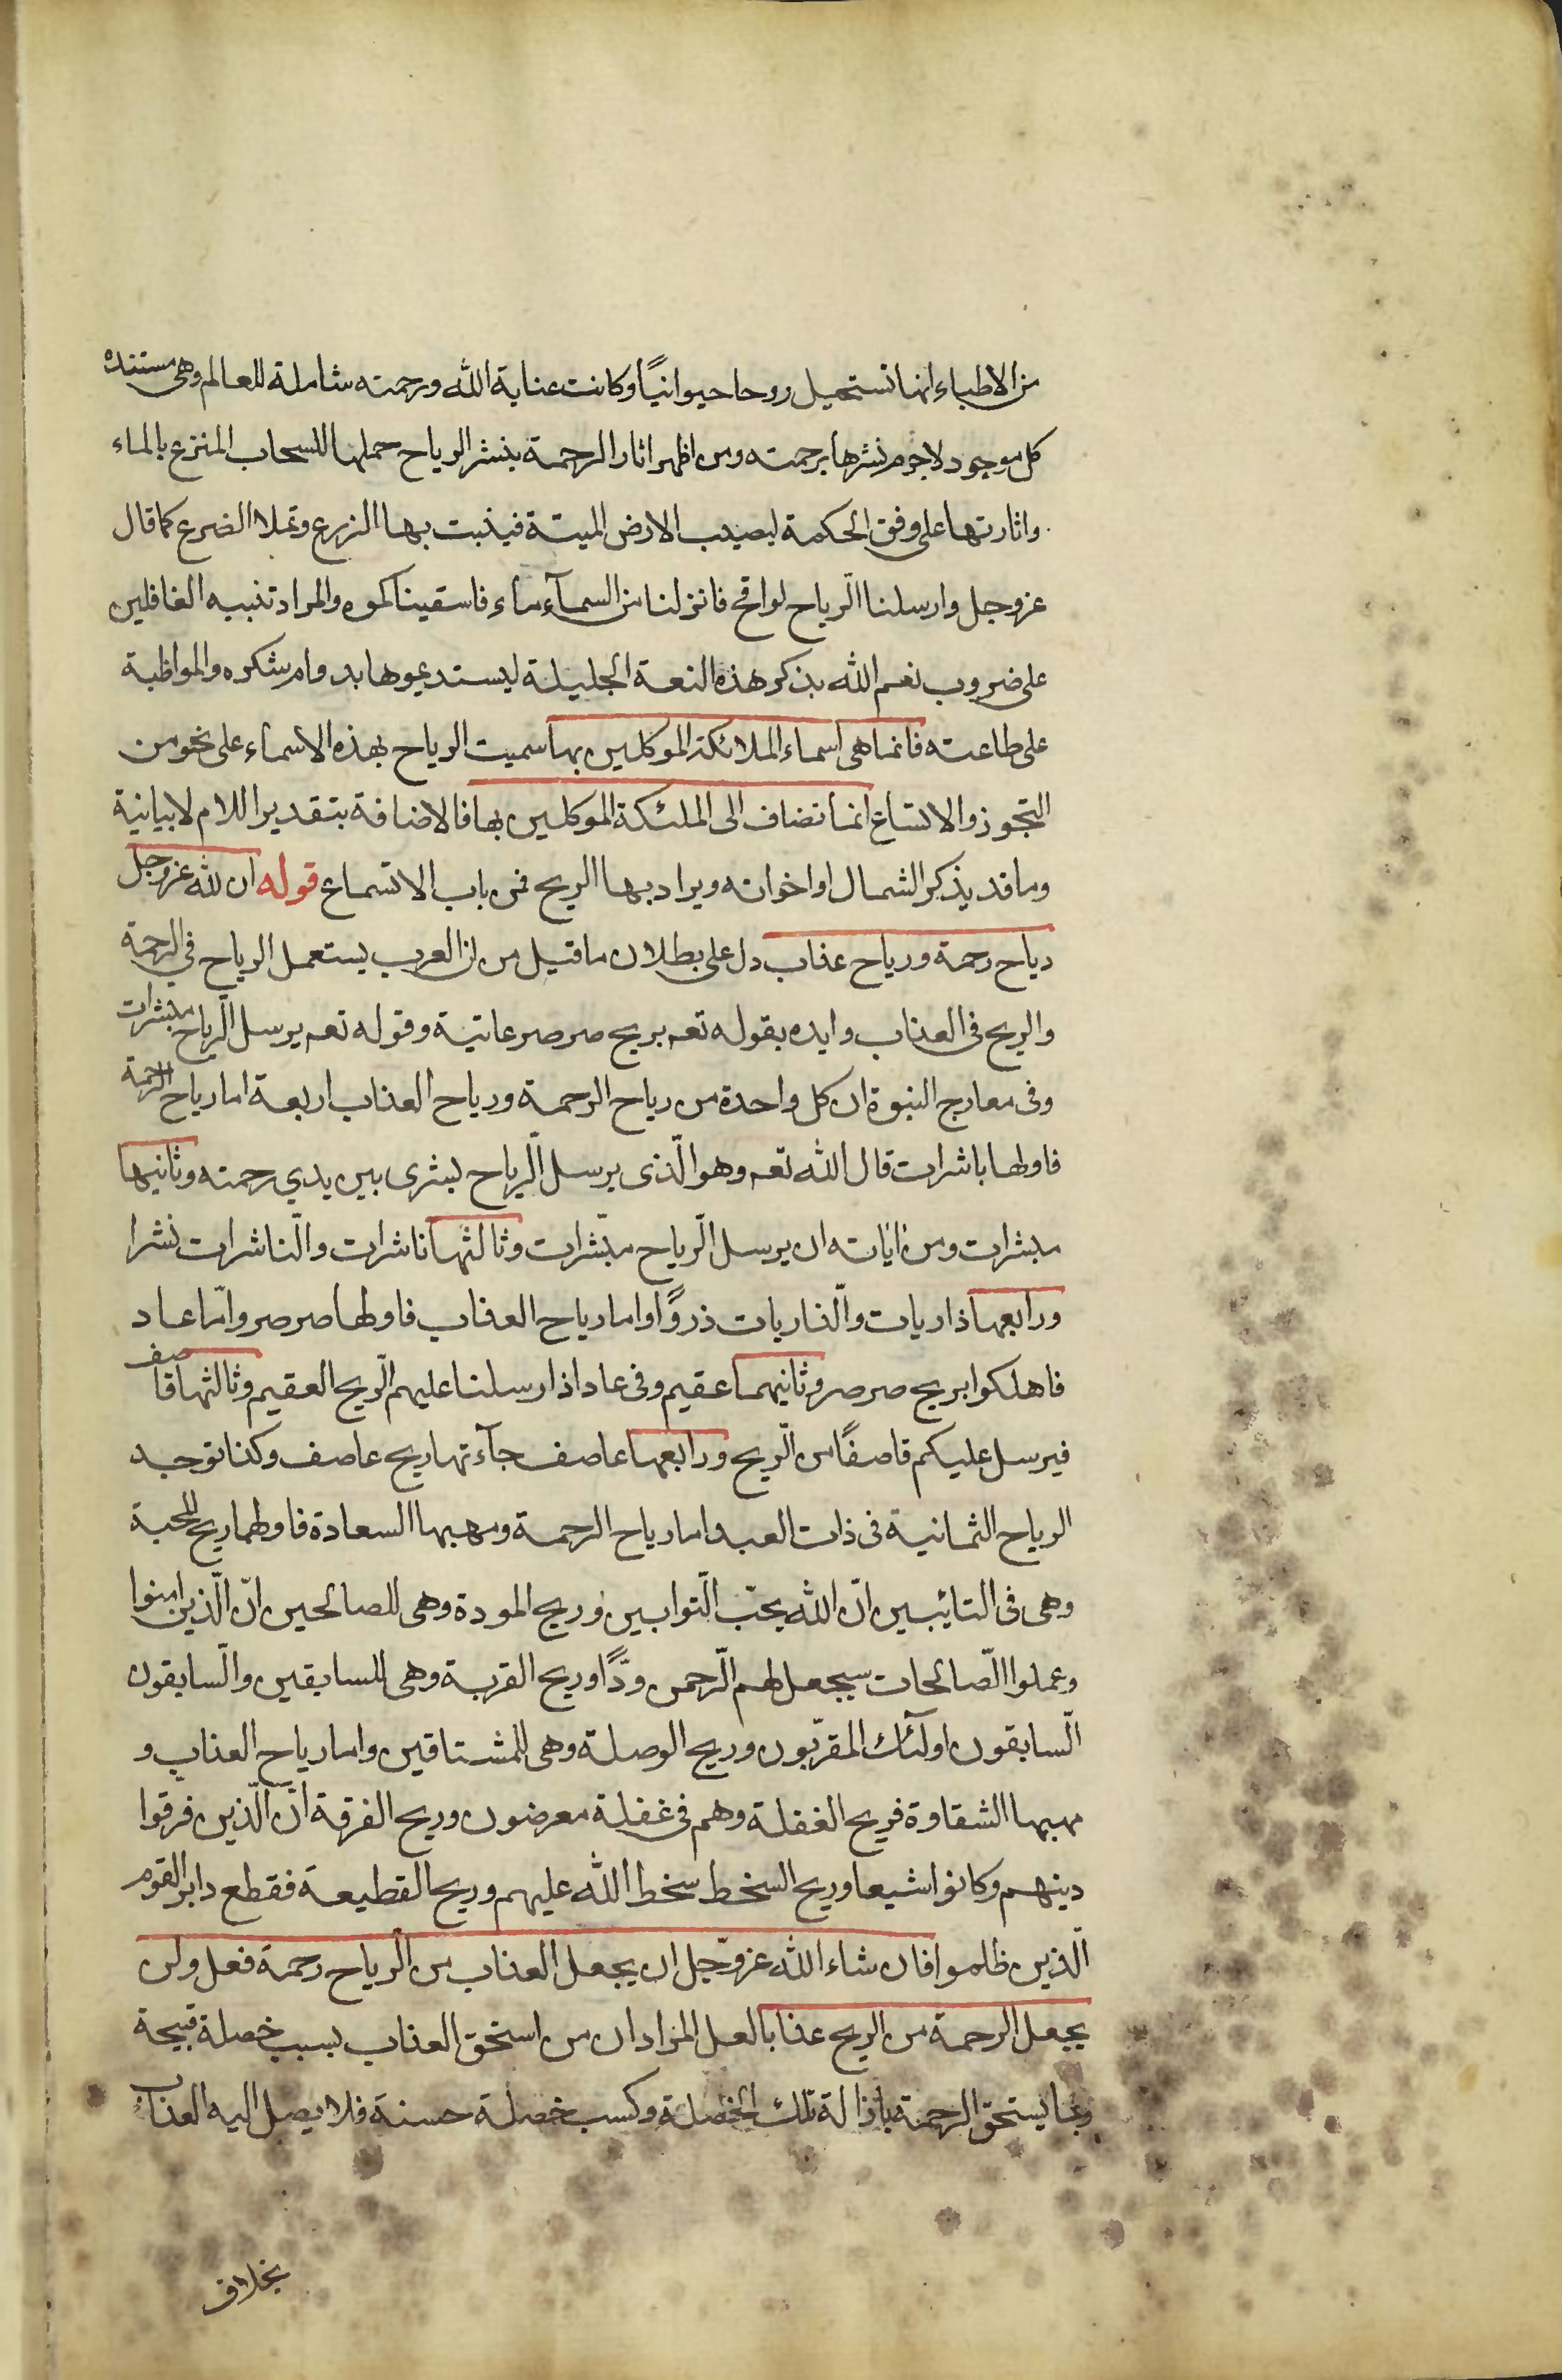 من الاطباء انها تستحيل روحا حيوانيّاً وكانت عناية الله ورحمته شاملة للعالم وهى مستنده
كل موجود لاجرم نشرها برحمته ومن اظهر اثار الرحمة بنشر الرياح حملها للسحاب المنزع بالماء
واثارتها على وفق الحكمة ليصيب الارض الميتة فينبت بها الزرع وتملا الضرع كما قال
عز وجل وارسلنا الّرياح لواقح فانزلنا من السمآء ماء فاسقيناكموه والمراد تنبيه الغافلين
على ضروب نعم الله بذكر هذه النعمة الجليلة ليستديموها بدوام شكره والمواظبة
على طاعته فانما هى اسماء الملائكة الموكلين بها سميت الرياح بهذه الاسماء على نحو من
التجوز والاتساع انما تضاف الى الملئكة الموكلين بها فالاضافة بتقدير اللام لا بيانية
وما قد يذكر الشمال او اخواته ويراد بها الريح فمن باب الاتساع قوله ان لله عز وجل
رياح رحمة ورياح عذاب دل على بطلان ما قيل من ان العرب يستعمل الرياح فى الرحمة
والريح فى العذاب وايده بقوله تعم بريح صرصر عاتية وقوله تعم يرسل الّرياح مبشرات
وفى معارج النبوة ان كل واحدة من رياح الرحمة ورياح العذاب اربعة اما رياح الرحمة
فاولها باشرات قال الله تعم وهو الّذى يرسل الّرياح بشرى بين يدي رحمته وثانيها
مبشرات ومن اٰياته ان يرسل الّرياح مبّشرات وثالثها ناشرات والّناشرات نشرا
ورابعها ذاريات والّذاريات ذروًا واما رياح العذاب فاولها صرصر وامّا عاد
فاهلكوا بريح صرصر وثانيهما عقيم وفى عاد اذ ارسلنا عليهم الّريح العقيم وثالثها قاصف
فيرسل عليكم قاصفًا من الّريح ورابعها عاصف جآءتها ريح عاصف وكذا توجد
الرياح الثمانية فى ذات العبد اما رياح الرحمة ومهبها السعادة فاولهما ريح المحبة
وهى فى التائبين انّ الله يحبّ الّتوابين وريح المودة وهى للصالحين انّ الّذين امنوا
وعملوا الّصالحات سيجعل لهم الّرحمن ودًّا وريح القربة وهى للسابقين والّسابقون
الّسابقون اولٓئك المقرّبون وريح الوصلة وهى للمشتاقين واما رياح العذاب و
مهبها الشقاوة فريح الغفلة وهم فى غفلة معرضون وريح الفرقة انّ الّذين فرقوا
دينهم وكانوا شيعا وريح السخط سخط الله عليهم وريح القطيعة فقطع دابر القوم
الّذين ظلموا فان شاء الله عز وجل ان يجعل العذاب من الرياح رحمة فعل ولن
يجعل الرحمة من الريح عذابا لعل المراد ان من استحق العذاب بسبب خصلة قبيحة
ربما يستحق الرحمة باذالة تلك الخصلة وكسب خصلة حسنة فلا يصل اليه العذاب
بخلاف